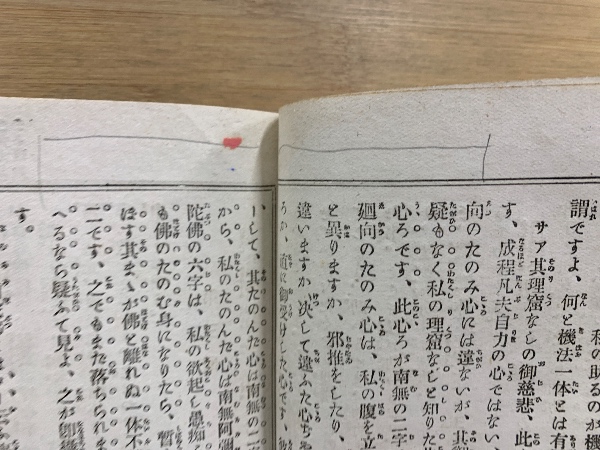 私の助るのが機
謂ですよ、何と機法一体とは有
サア其理窟なしの御慈悲、此
す、成程凡夫自力の心ではない
向のたのみ心には違ないが、其
疑もなく私の理窟なしと知りた
心ろです、此心ろが南無の二字
廻向のたのみ心は、私の腹を立
と異りますか、邪推をしたり、
違いますか決して違ふた心ぢや
ろか、直に御受けした心です、
ーして、其たのんだ心は南無の二字
から、私のたのんだ心は南無阿彌
陀佛の六字は、私の欲起し愚痴
も佛のたのむ身になりたら、暫
ほす其まゝが佛と離れぬ一体不
二です、之でもまだ落ちられま
へるなら疑ふて見よ、之が
す。